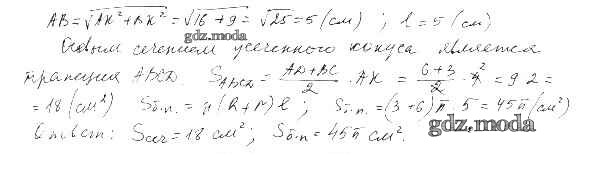 AB = √(AK² + BK²) = √(16 + 9) = √25 = 5 (см) ; l = 5 (см)
gdz.moda
Осевым сечением усеченного конуса является
трапеция ABCD S_ABCD = (AD+BC)/2 · AK = (6+3)/2 · 4² = 9·2 =
= 18 (см²) Sб.п. = π(R+r)l ; Sб.п. = (3+6)π · 5 = 45π (см²)
Ответ: Sсеч = 18 см² ; Sб.п. = 45π см².
gdz.moda